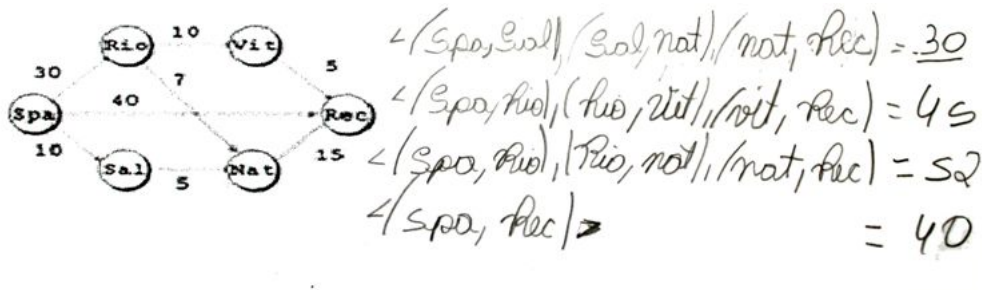 Rio 10 Vit
30 7 5
Spa 40 Rec
10 15
Sal 5 Nat
<(Spa,Sal) (Sal,nat),(nat, Rec) = 30
<(Spa,Rio),(Rio,Vit),(vit, Rec) = 45
<(Spa,Rio),(Rio,nat),(nat,Rec) = 52
<(Spa, Rec)> = 40